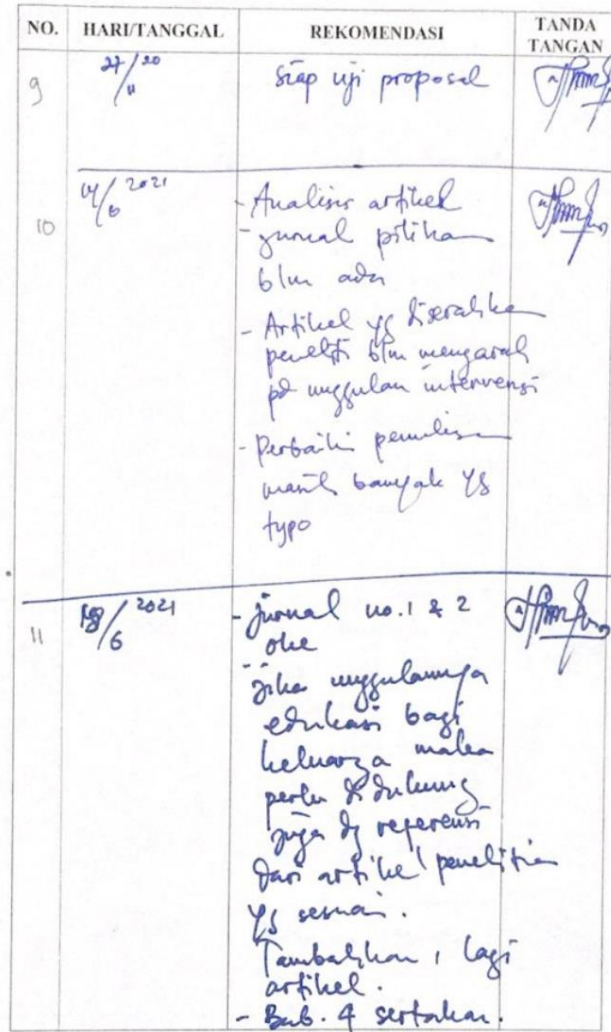 NO. HARI/TANGGAL REKOMENDASI TANDA TANGAN
9 27/11 20 Siap uji proposal
10 14/6 2021 - Analisis artikel
- jurnal pilihan
blm ada
- Artikel yg diserahkan
peneliti blm mengarah
pd unggulan intervensi
- Perbaiki penulisan
masih banyak yg
typo
11 18/6 2021 - jurnal no. 1 & 2
oke
jika unggulannya
edukasi bagi
keluarga maka
perlu didukung
juga dg referensi
dari artikel penelitian
yg sesuai.
Tambahkan 1 lagi
artikel.
- Bab. 4 sertakan.